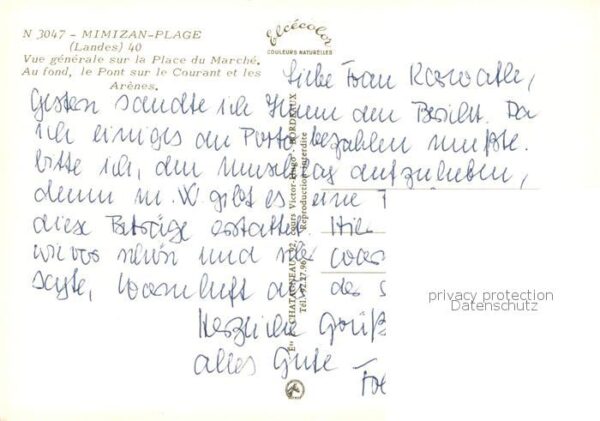 N 3047 - MIMIZAN-PLAGE
(Landes) 40
Vue générale sur la Place du Marché.
Au fond, le Pont sur le Courant et les
Arènes.
Elcécolor
COULEURS NATURELLES
Liebe Frau
Gestern sandte ich Ihnen den Bericht. Da
ich einiges an Porto bezahlen mußte.
bitte ich, den aufzuheben,
denn m. W. gibt es eine
diese Beträge erstattet. Hier
wie vor schön und sehr
sagte, Warmluft
Herzliche Grüß
alles Gute
CHATAGNEAU 92, Cours Victor-Hugo - BORDEAUX
Tél. 92.27.96 Reproduction interdite
privacy protection
Datenschutz